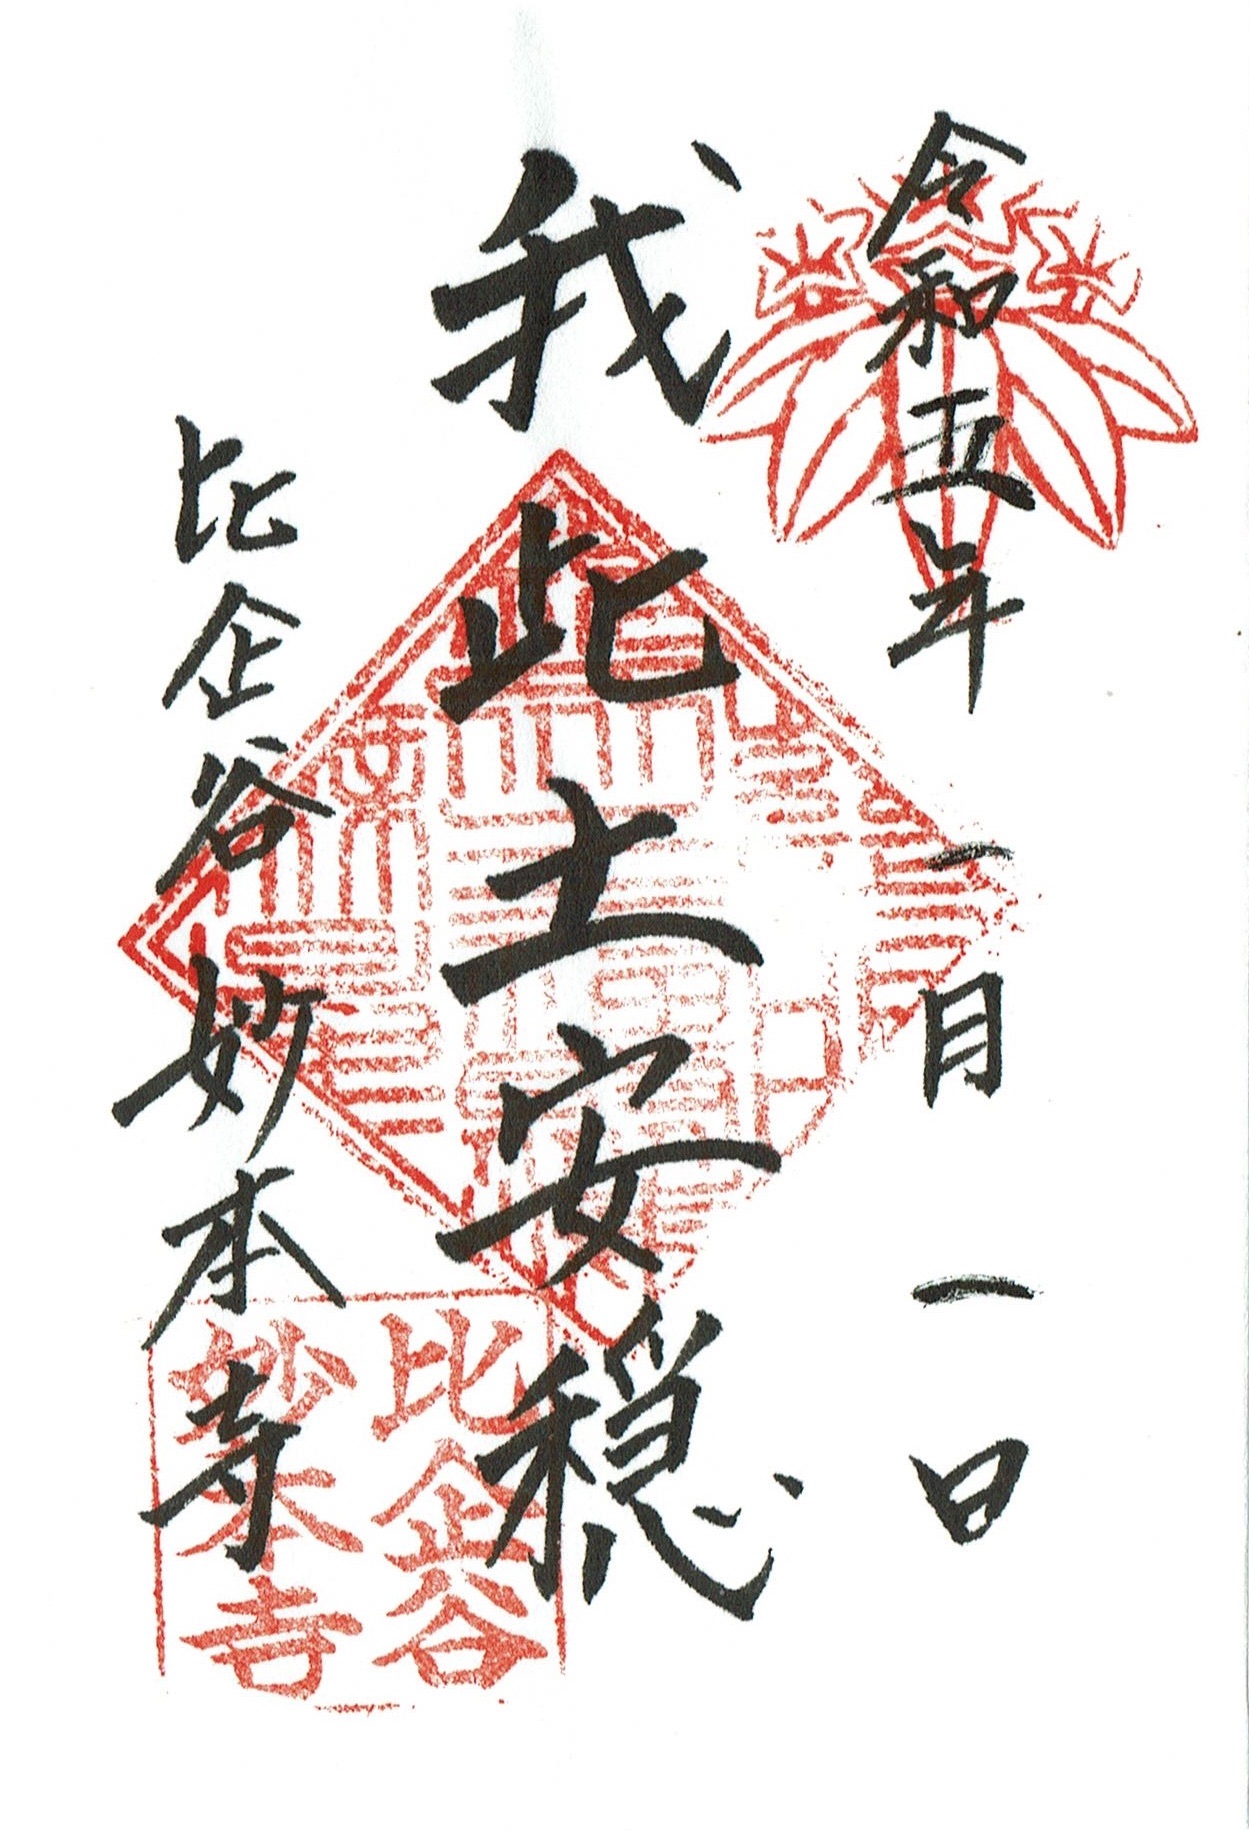 令和五年 一月 一日
我此土安穏
比企谷妙本寺
比企谷
妙本寺